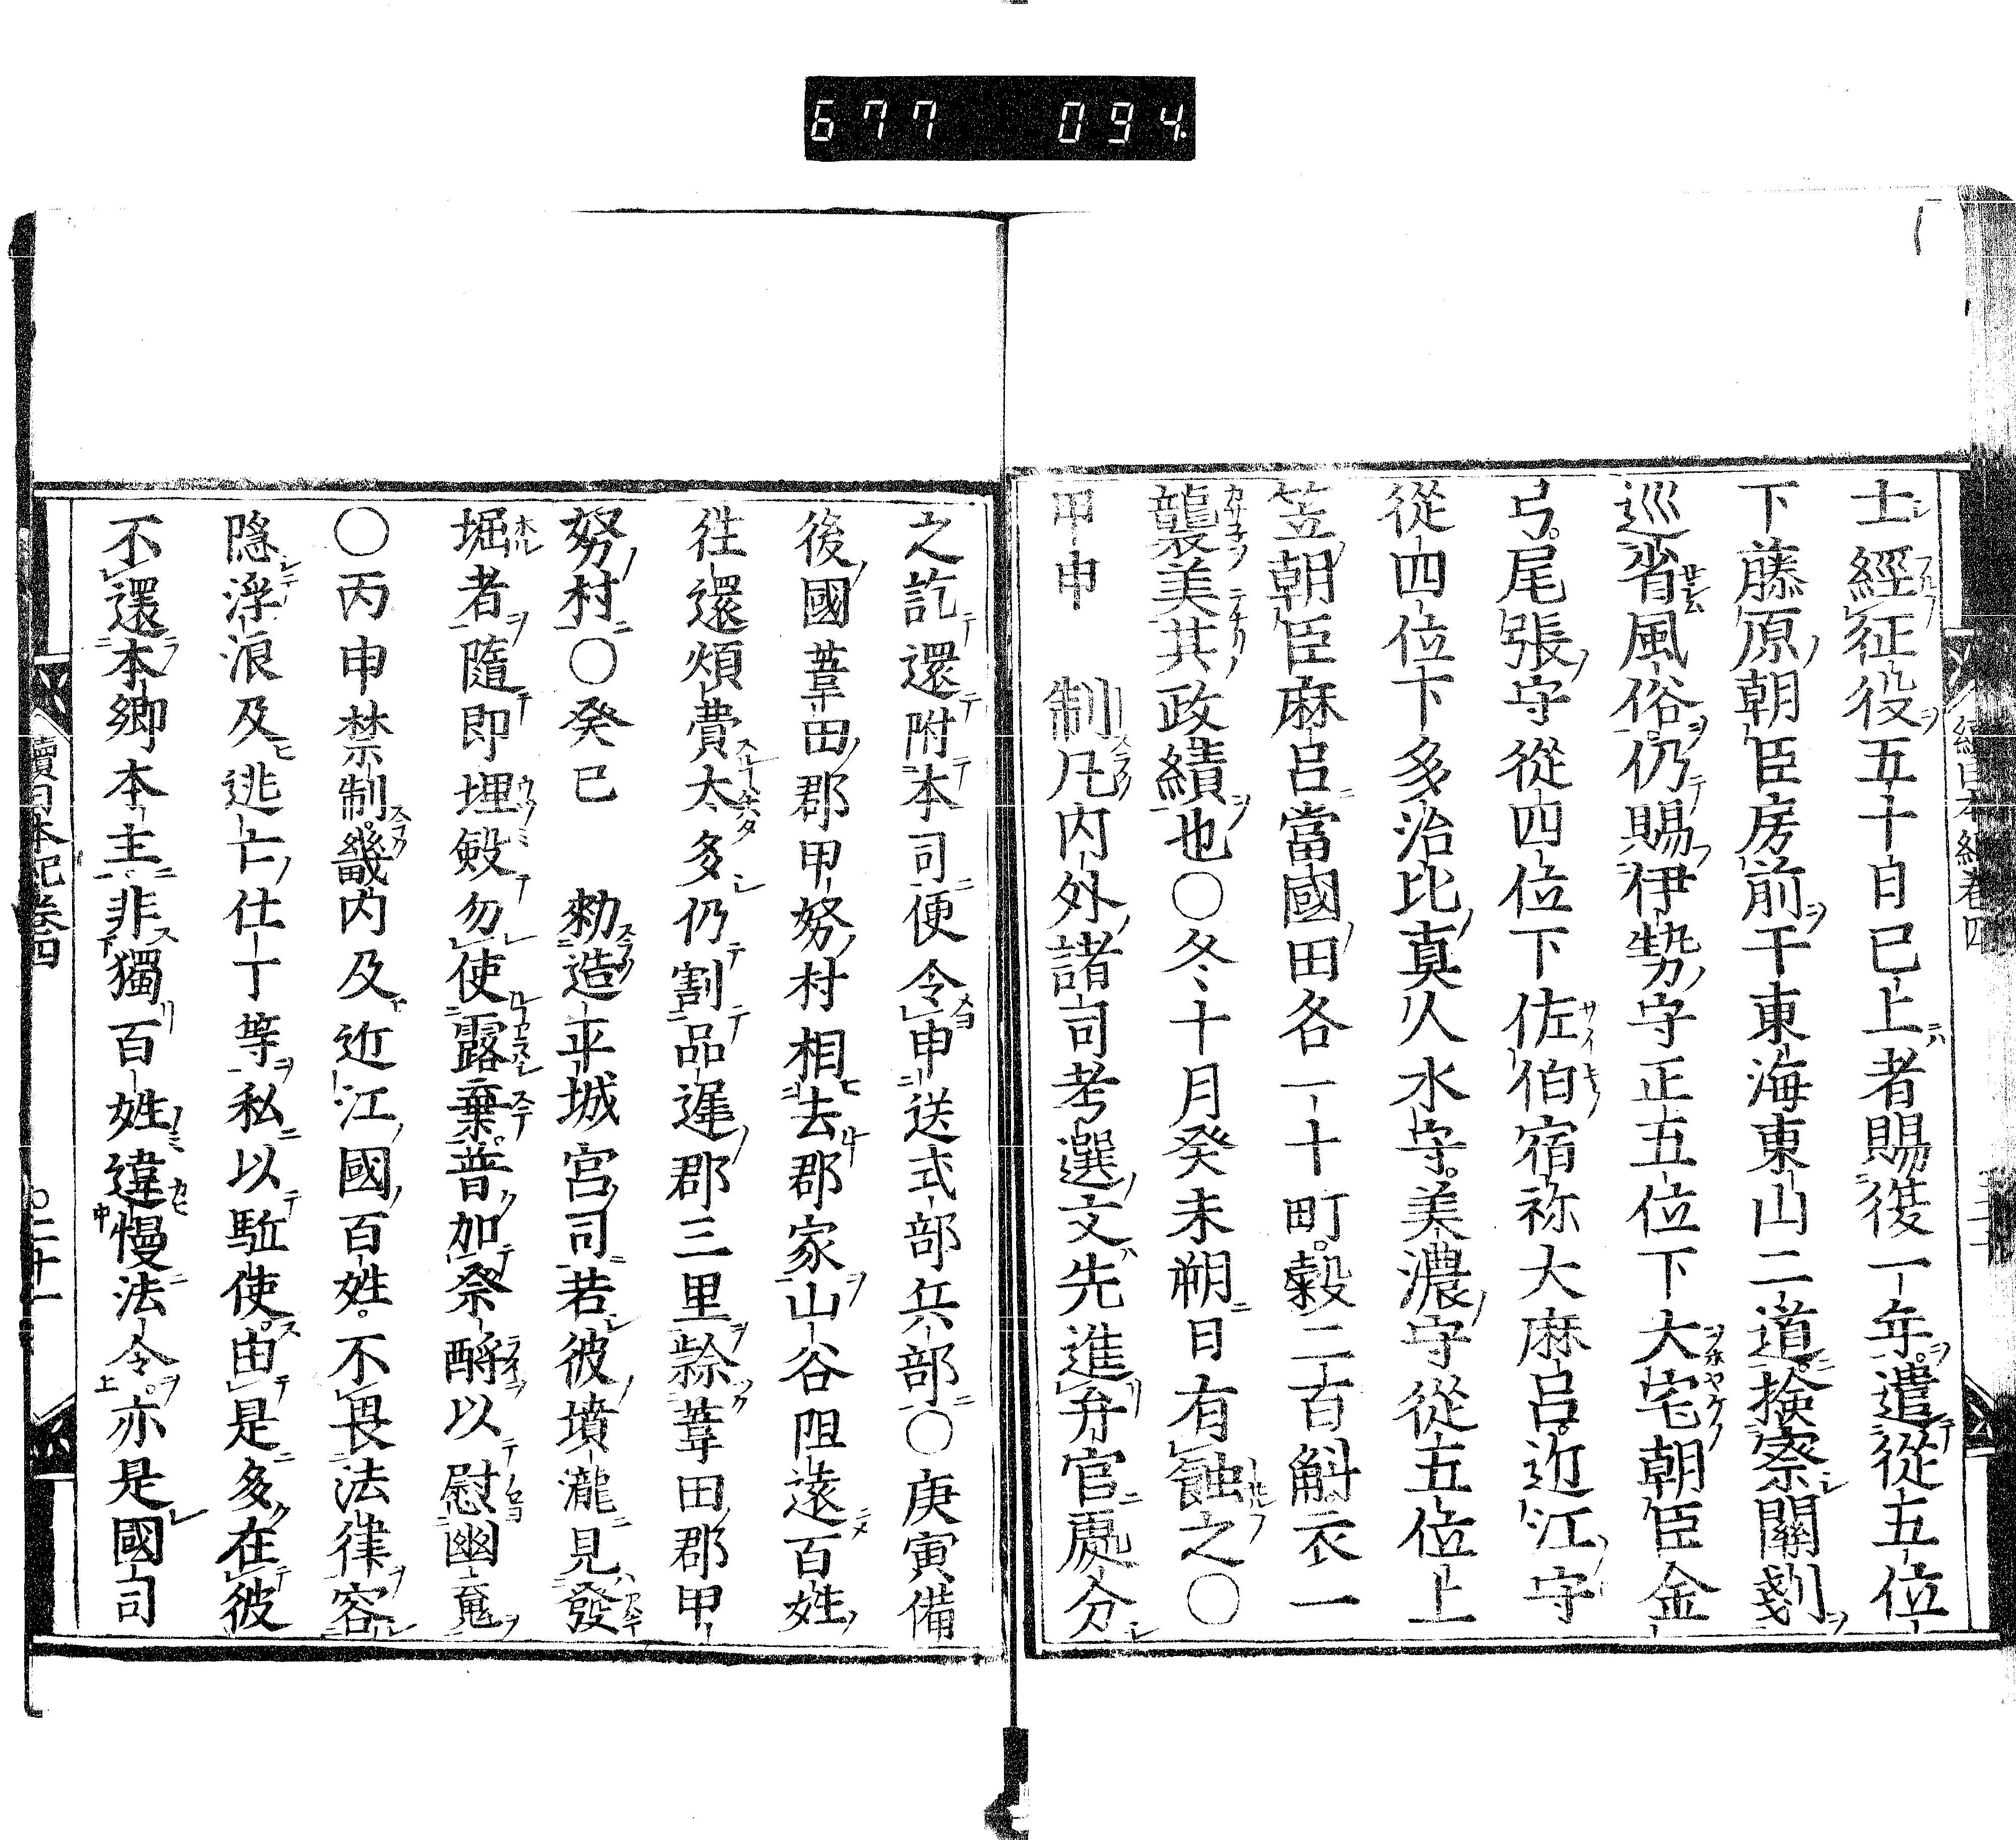 677 094.
士經征役五十日已上者賜復一年遣從五位
下藤原朝臣房前于東海東山二道檢察關剗
巡省風俗仍賜伊勢守正五位下大宅朝臣金
弓尾張守從四位下佐伯宿祢大麻呂近江守
從四位下多治比真人水守美濃守從五位上
笠朝臣麻呂當國田各一十町穀二百斛衣一
襲美其政績也○冬十月癸未朔日有蝕之○
甲申 制凡内外諸司考選文先進弁官處分
之訖還附本司便令申送式部兵部○庚寅備
後國葦田郡甲努村相去郡家山谷阻遠百姓
往還煩費太多仍割品遲郡三里隷葦田郡甲
努村○癸巳 勅造平城宮司若彼墳瀧見發
堀者隨即埋殮勿使露棄普加祭酹以慰幽䰟
○丙申禁制畿内及近江國百姓不畏法律容
隠浮浪及逃亡仕丁等私以駈使由是多在彼
不還本郷本主非獨百姓違慢法令亦是國司
續日本紀卷四 ○二十一